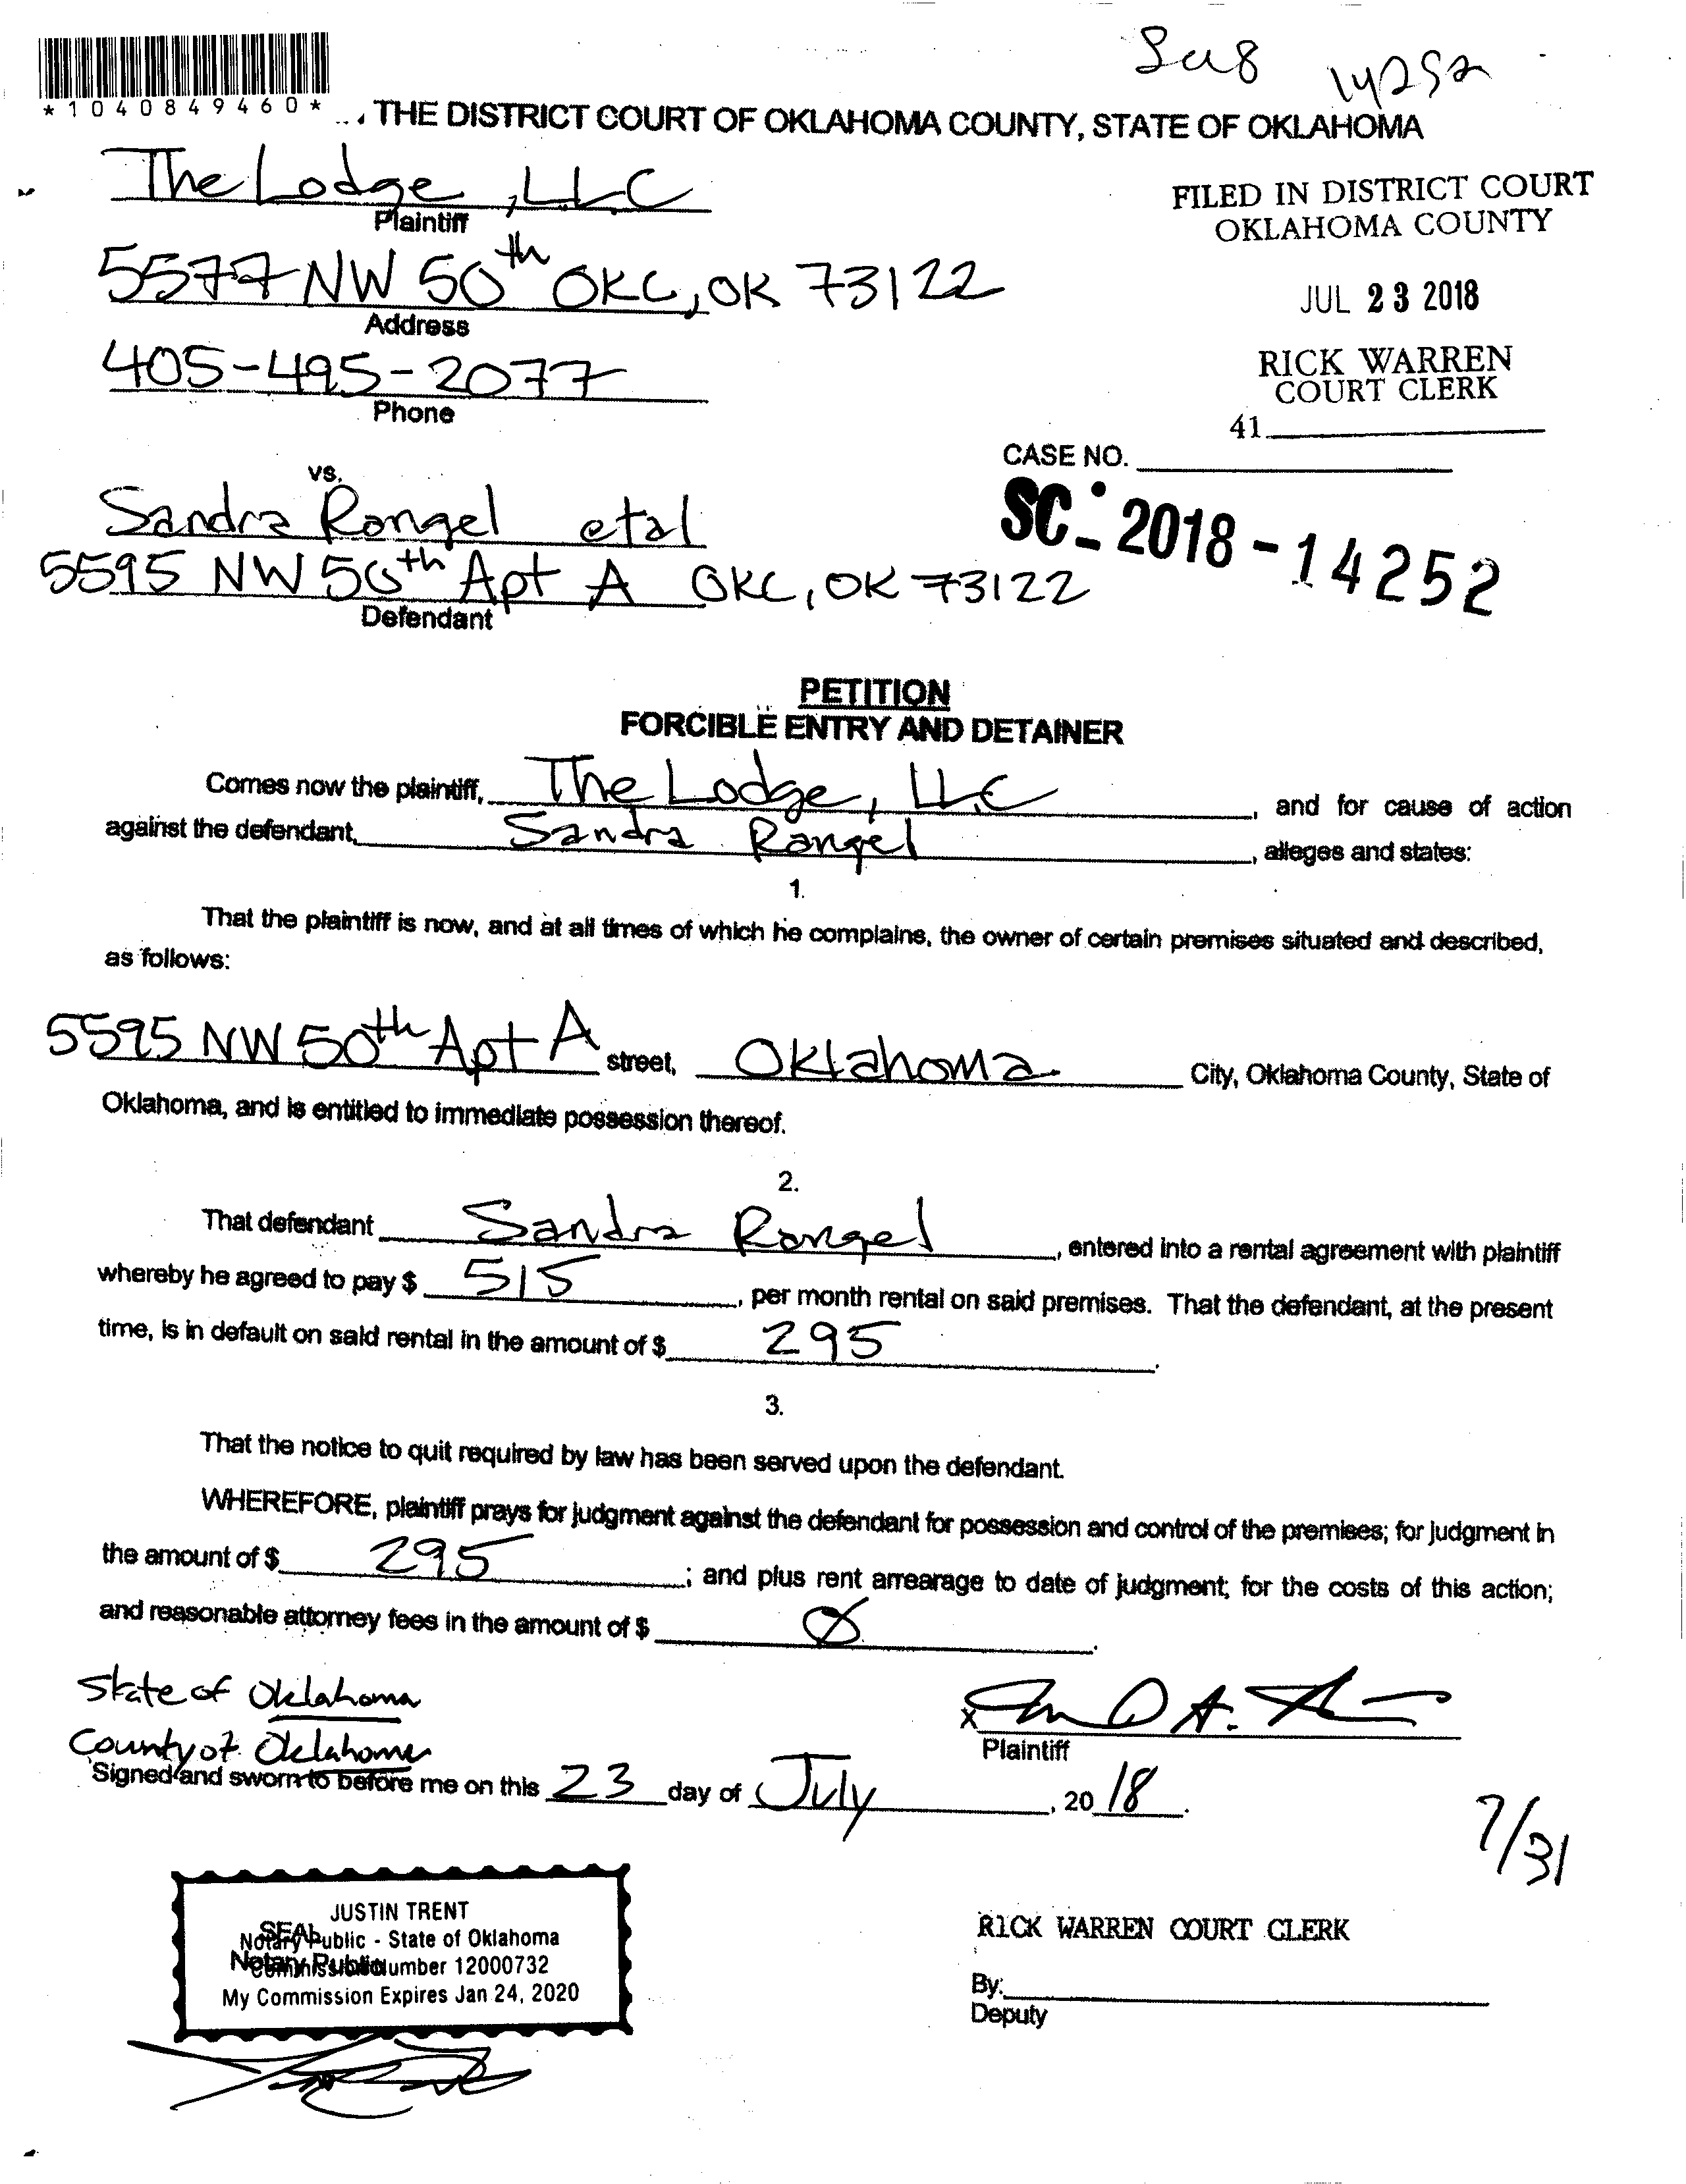 *1040849460*
Sc18 14252
THE DISTRICT COURT OF OKLAHOMA COUNTY, STATE OF OKLAHOMA
The Lodge, LLC
Plaintiff
FILED IN DISTRICT COURT
OKLAHOMA COUNTY
5577 NW 50th OKC, OK 73122
Address
JUL 23 2018
405-495-2077
Phone
RICK WARREN
COURT CLERK
41
CASE NO.
vs.
Sandra Rangel etal
SC-2018-14252
5595 NW 50th Apt A OKC, OK 73122
Defendant
PETITION
FORCIBLE ENTRY AND DETAINER
Comes now the plaintiff, The Lodge, LLC, and for cause of action
against the defendant, Sandra Rangel, alleges and states:
1.
That the plaintiff is now, and at all times of which he complains, the owner of certain premises situated and described,
as follows:
5595 NW 50th Apt A street, Oklahoma City, Oklahoma County, State of
Oklahoma, and is entitled to immediate possession thereof.
2.
That defendant Sandra Rangel, entered into a rental agreement with plaintiff
whereby he agreed to pay $ 515, per month rental on said premises. That the defendant, at the present
time, is in default on said rental in the amount of $ 295.
3.
That the notice to quit required by law has been served upon the defendant.
WHEREFORE, plaintiff prays for judgment against the defendant for possession and control of the premises; for judgment in
the amount of $ 295; and plus rent arrearage to date of judgment; for the costs of this action;
and reasonable attorney fees in the amount of $ Ø.
State of Oklahoma
County of Oklahoma
x
Plaintiff
Signed and sworn to before me on this 23 day of July, 2018.
7/31
JUSTIN TRENT
SEAL
Notary Public - State of Oklahoma
Notary Public
Commission Number 12000732
My Commission Expires Jan 24, 2020
RICK WARREN COURT CLERK
By:
Deputy